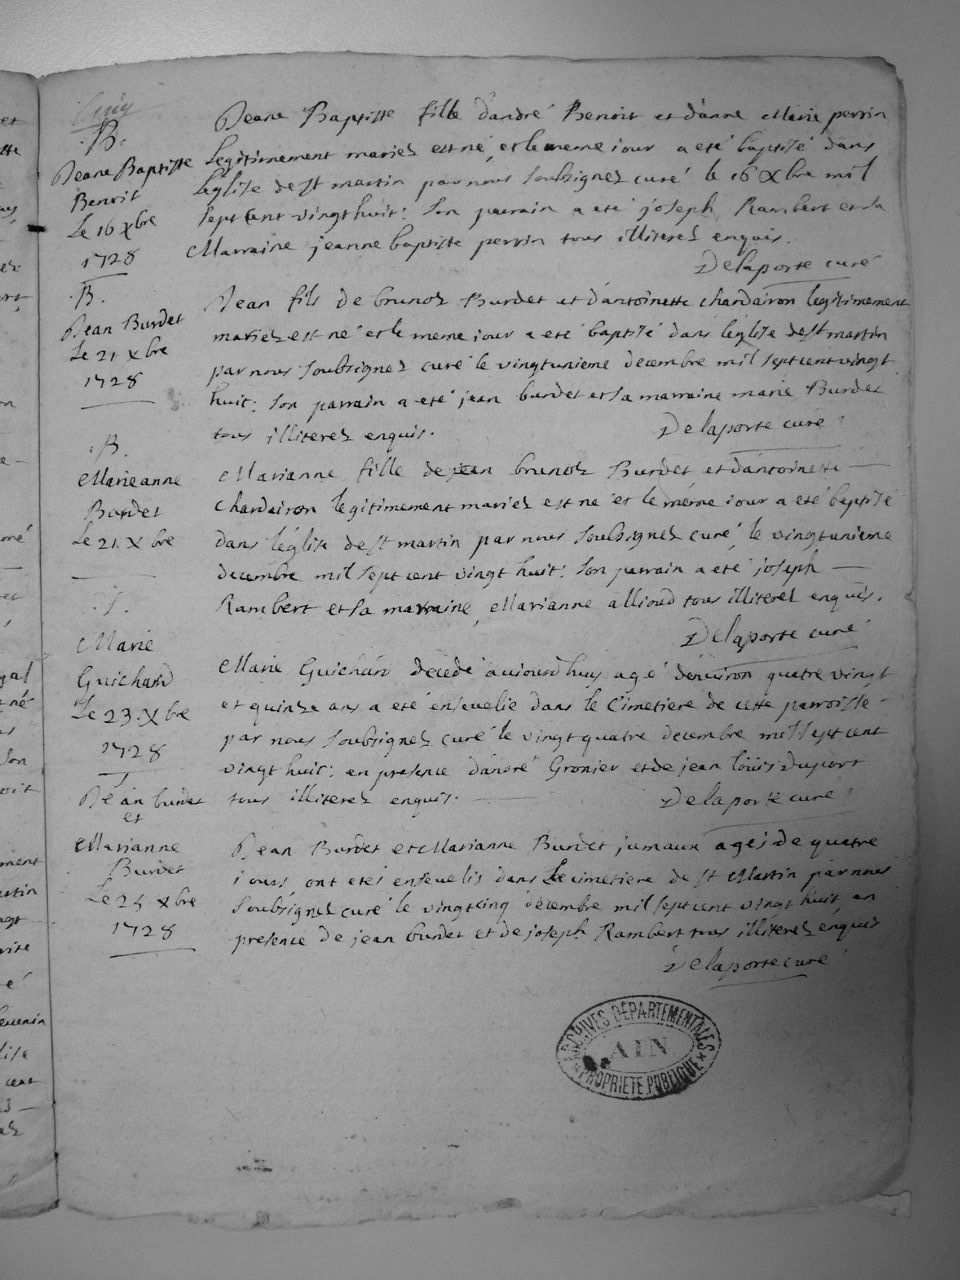 B.
Jeane Baptiste
Benoit
Le 16 xbre
1728
Jeane Baptiste fille d'andré Benoit et d'anne Marie perrin
legitimement mariez est né, et le meme iour a eté baptisé dans
l'eglise de st martin par nous soubsignez curé le 16 xbre mil
sept cent vingt huit: son parrain a eté joseph Rambert et sa
Marraine jeanne baptiste perrin tous illiterez enquis.
Delaporte curé
B.
Jean Burdet
Le 21 xbre
1728
Jean fils de brunoz Burdet et d'antoinette chardairon legitimement
mariez est né et le meme iour a eté baptisé dans l'eglise de st martin
par nous soubsignez curé le vingtunieme decembre mil sept cent vingt
huit: son parrain a eté jean burdet et sa marraine marie Burdet
tous illiterez enquis.
Delaporte curé
B.
Marieanne
Burdet
Le 21. x bre
Marianne fille de jean brunoz Burdet et d'antoinette
chardairon legitimement mariez est né et le méme iour a eté baptisé
dans l'église de st martin par nous soubsignez curé, le vingtunieme
decembre mil sept cent vingt huit: son parrain a eté joseph
Rambert et sa marraine, Marianne allioud tous illiterez enquis.
Delaporte curé
S.
Marie
Guichard
Le 23. xbre
1728
Marie Guichard décédé aujourd'huy agé d'environ quatre vingt
et quinze ans a eté ensevelie dans le Cimetiere de cette parroisse
par nous soubsignez curé le vingt quatre decembre mil sept cent
vingt huit: en presence d'andré Gronier et de jean loüis Duport
tous illiterez enquis.
Delaporte curé
Jean burdet
et
Marianne
Burdet
Le 25 xbre
1728
Jean Burdet et Marianne Burdet jumaux agés de quatre
iours, ont etés ensevelis dans le cimetiere de st Martin par nous
soubsignez curé le vingtcinq décembre mil sept cent vingt huit, en
presence de jean burdet et de joseph Rambert tous illiterez enquis
Delaporte curé
ARCHIVES DÉPARTEMENTALES
AIN
PROPRIETE PUBLIQUE